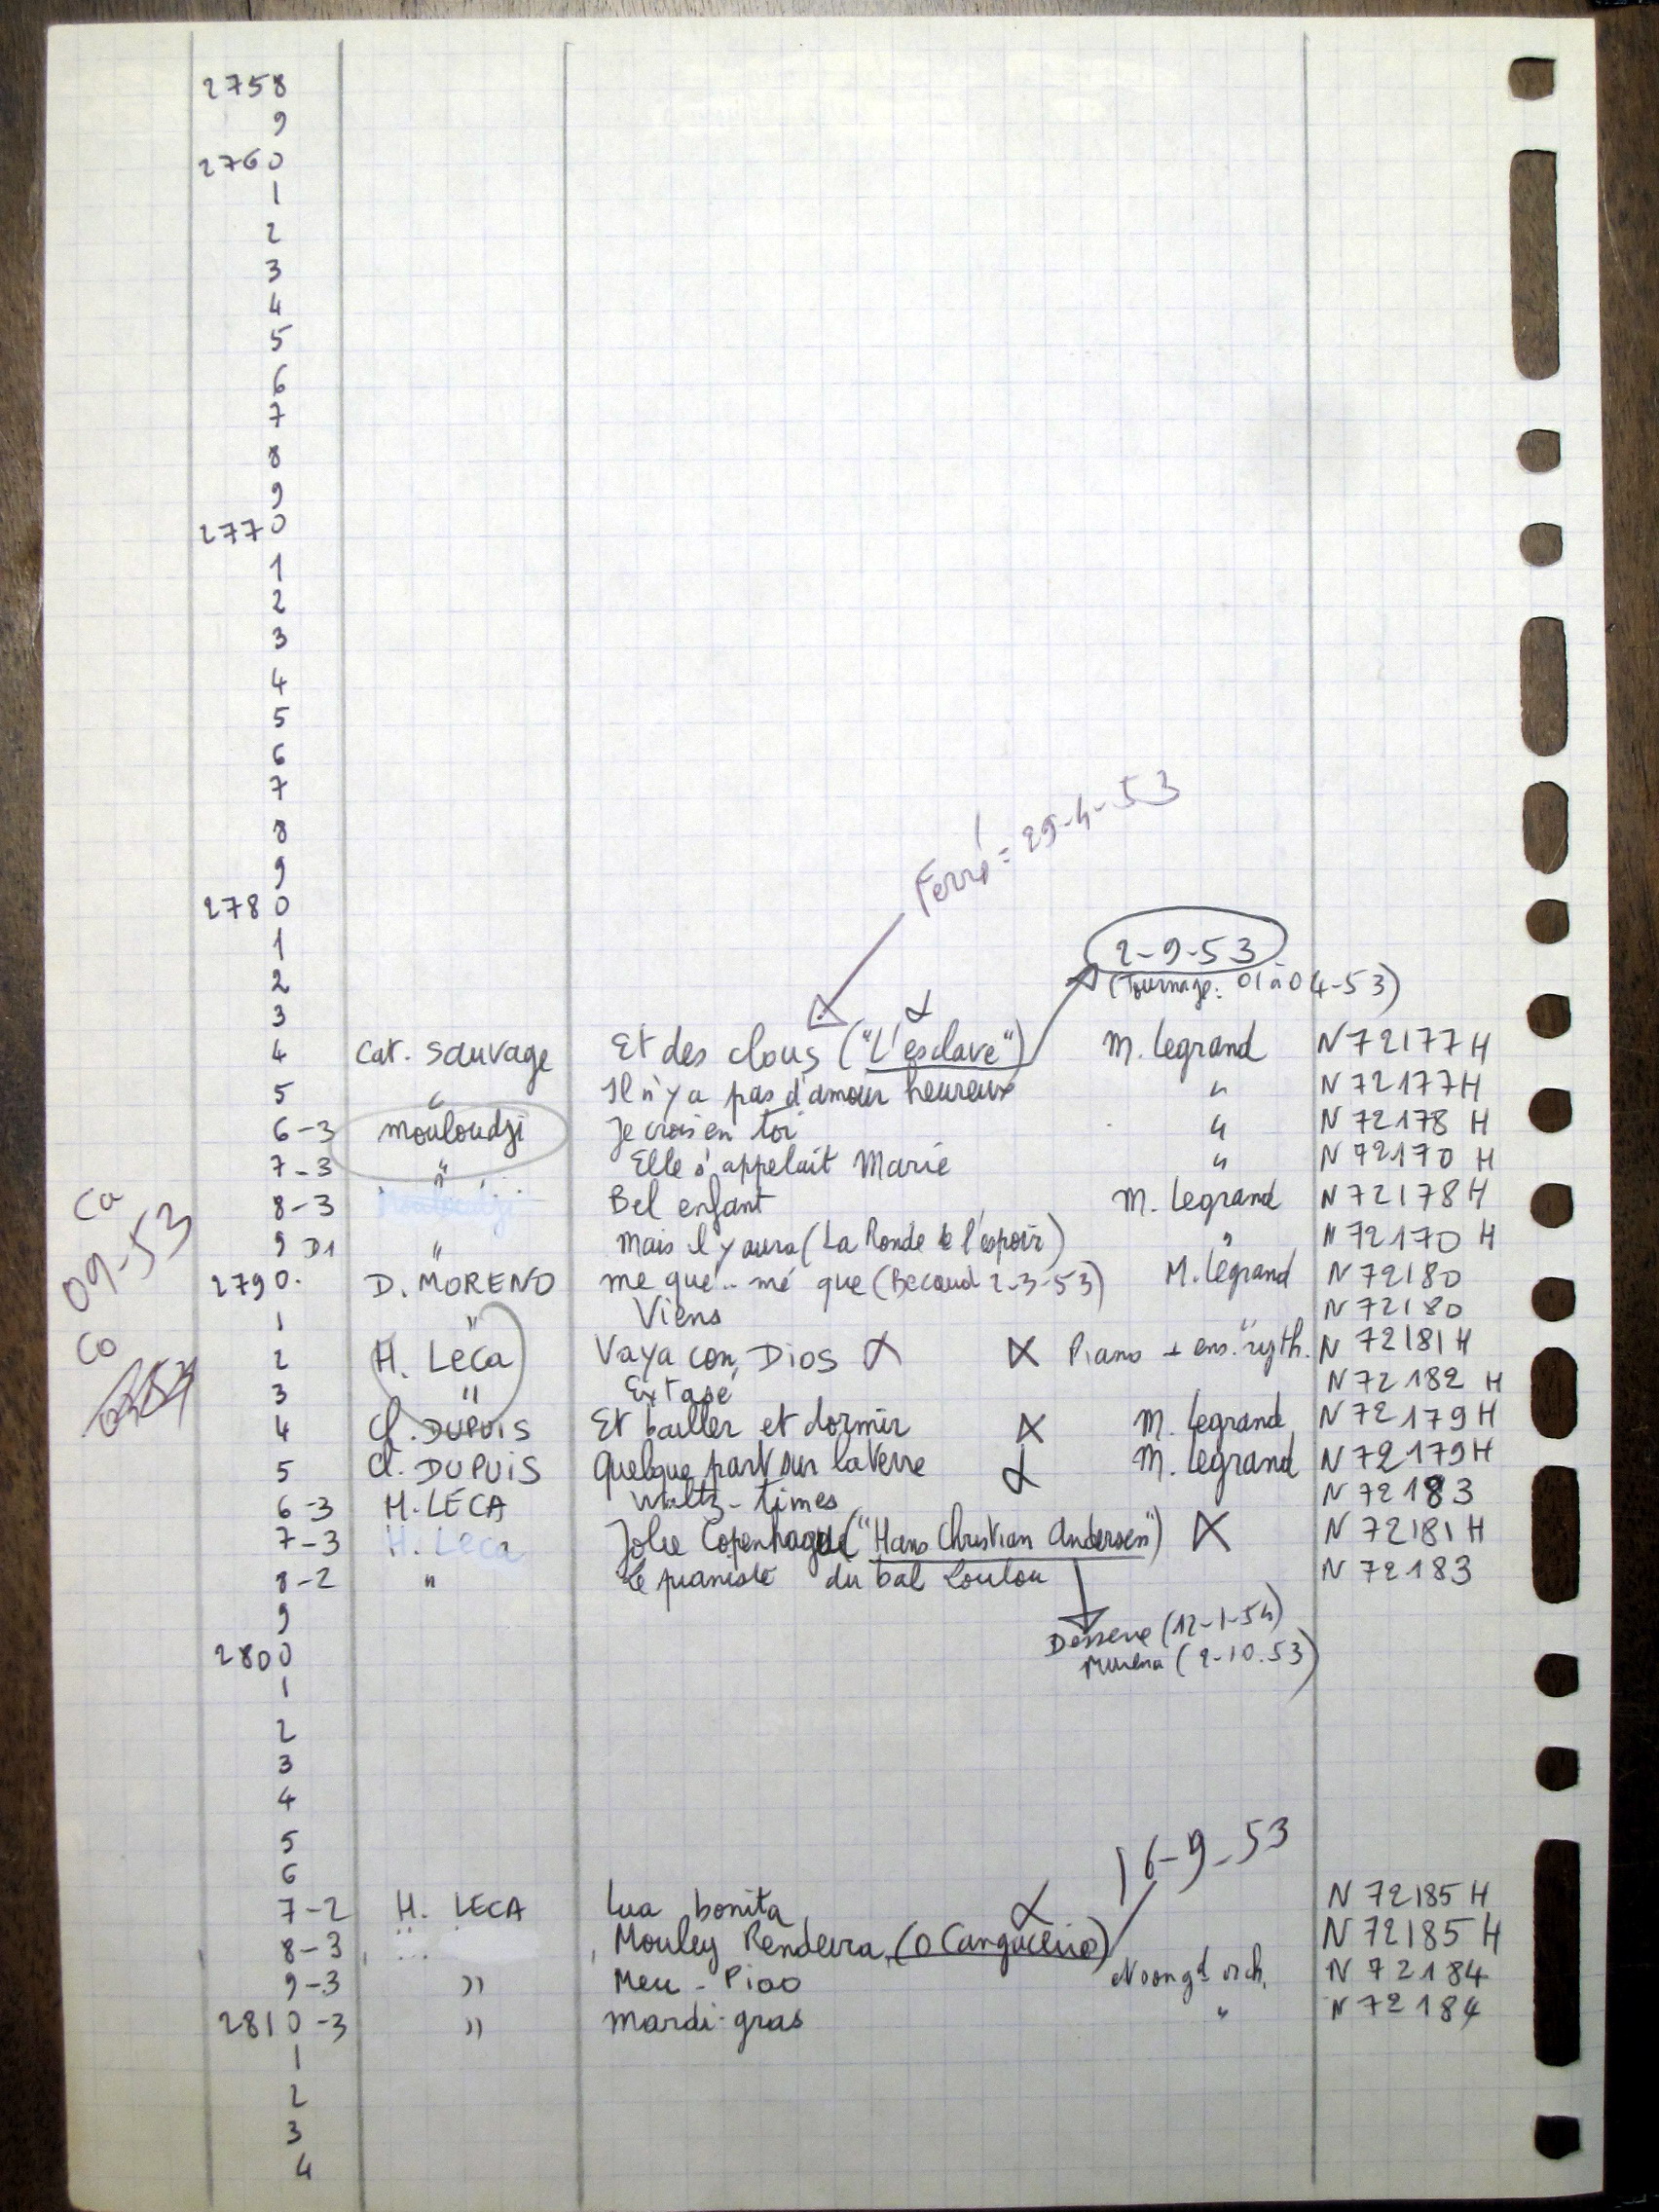 2758
9
2760
1
2
3
4
5
6
7
8
9
2770
1
2
3
4
5
6
7
8
9
Ferré = 29-4-53
2780
1 2-9-53
2 (Tournage: 01 à 04-53)
3
4 Cat. Sauvage Et des clous ("L'esclave") M. Legrand N 72177 H
5 " Il n'y a pas d'amour heureux " N 72177 H
6-3 Mouloudji Je crois en toi " N 72178 H
7-3 " Elle s'appelait Marie " N 72170 H
8-3 Mouloudji Bel enfant M. Legrand N 72178 H
9 D1 " Mais il y aura (La Ronde de l'espoir) " N 72170 H
Ca 09-53
2790. D. MORENO me que.. mé que (Becaud 2-3-53) M. Legrand N 72180
1 " Viens " N 72180
Co
2 H. Leca Vaya con Dios Piano + ens. ryth. N 72181 H
3 " Extase N 72182 H
4 Cl. DUPUIS Et bailler et dormir M. Legrand N 72179 H
5 Cl. DUPUIS Quelque part sur la terre M. Legrand N 72179 H
6-3 H. LECA Waltz-times N 72183
7-3 H. Leca Jolie Copenhague ("Hans Christian Andersen") N 72181 H
8-2 " Le pianiste du bal Loulou N 72183
9 (12-1-54)
2800 (2-10.53)
1
2
3
4
5
6 16-9-53
7-2 H. LECA Lua bonita N 72185 H
8-3 " Mouley Rendeira (O Cangaceiro) N 72185 H
9-3 " Meu-Piao N 72184
2810-3 " Mardi-gras " N 72184
1
2
3
4